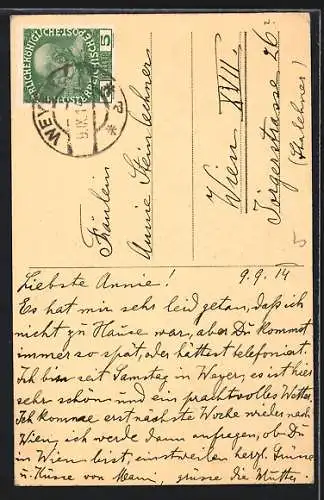 KAISERLICHE KÖNIGLICHE ÖSTERREICHISCHE POST
5
HELLER
WEYER
9.IX.14
Fräulein
Annie Steinlechner
Wien XVII.
Jörgerstrasse 26
5
Liebste Annie! 9.9.14
Es hat mir sehr leid getan, daß ich
nicht zu Hause war, aber Du kommst
immer so spät, oder hättest telefoniert.
Ich bin seit Samstag in Weyer, es ist hier
sehr schön und ein prachtvolles Wetter.
Ich komme erst nächste Woche wieder nach
Wien, ich werde dann anfragen, ob Du
in Wien bist, einstweilen herzl. Grüsse
u. Küsse von Mami, grüsse die Mutter.